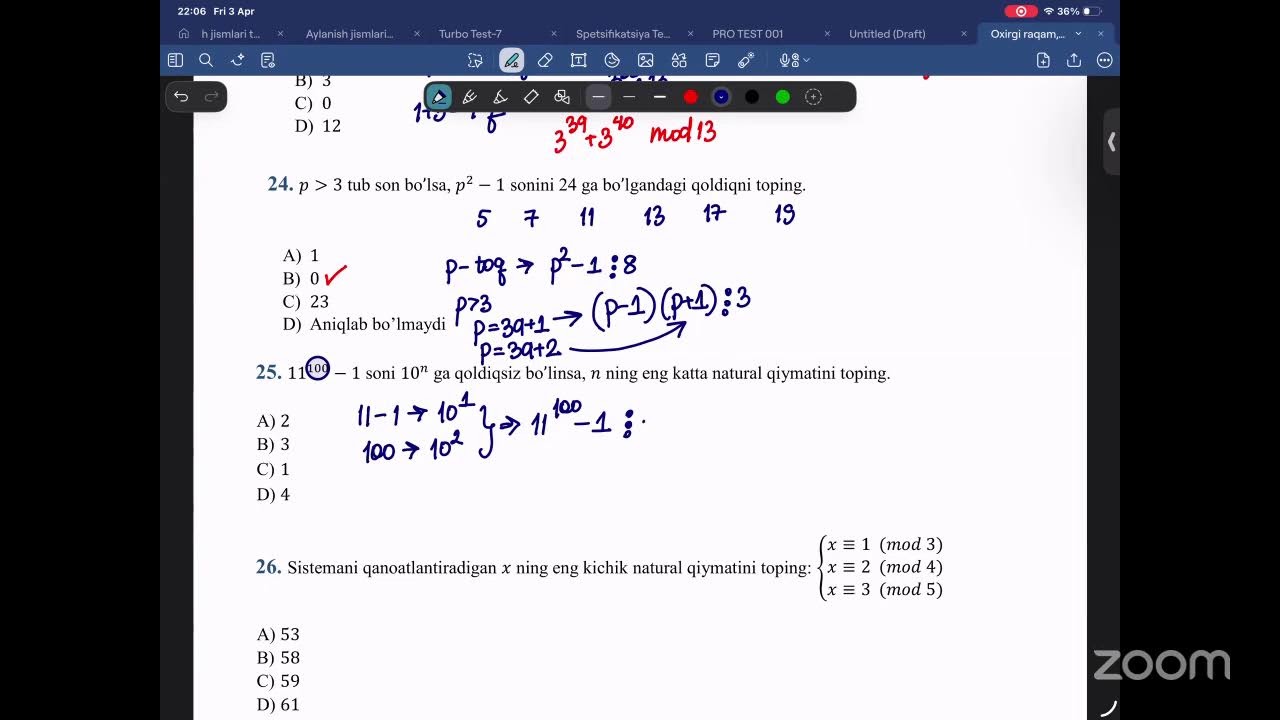 22:06 Fri 3 Apr
36%
h jismlari t... × Aylanish jismlari... × Turbo Test-7 × Spetsifikatsiya Te... × PRO TEST 001 × Untitled (Draft) × Oxirgi raqam,... ×
B) 3
C) 0
D) 12
3^39 + 3^40 mod 13
24. p > 3 tub son bo'lsa, p² − 1 sonini 24 ga bo'lgandagi qoldiqni toping.
5 7 11 13 17 19
A) 1
B) 0 ✓
C) 23
D) Aniqlab bo'lmaydi
p - toq → p² - 1 ⋮ 8
p>3
p=3q+1 → (p-1)(p+1) ⋮ 3
p=3q+2
25. 11^100 − 1 soni 10^n ga qoldiqsiz bo'linsa, n ning eng katta natural qiymatini toping.
A) 2
B) 3
C) 1
D) 4
11-1 → 10^1
100 → 10^2
} ⇒ 11^100 - 1 ⋮
26. Sistemani qanoatlantiradigan x ning eng kichik natural qiymatini toping: { x ≡ 1 (mod 3)
x ≡ 2 (mod 4)
x ≡ 3 (mod 5)
A) 53
B) 58
C) 59
D) 61
zoom